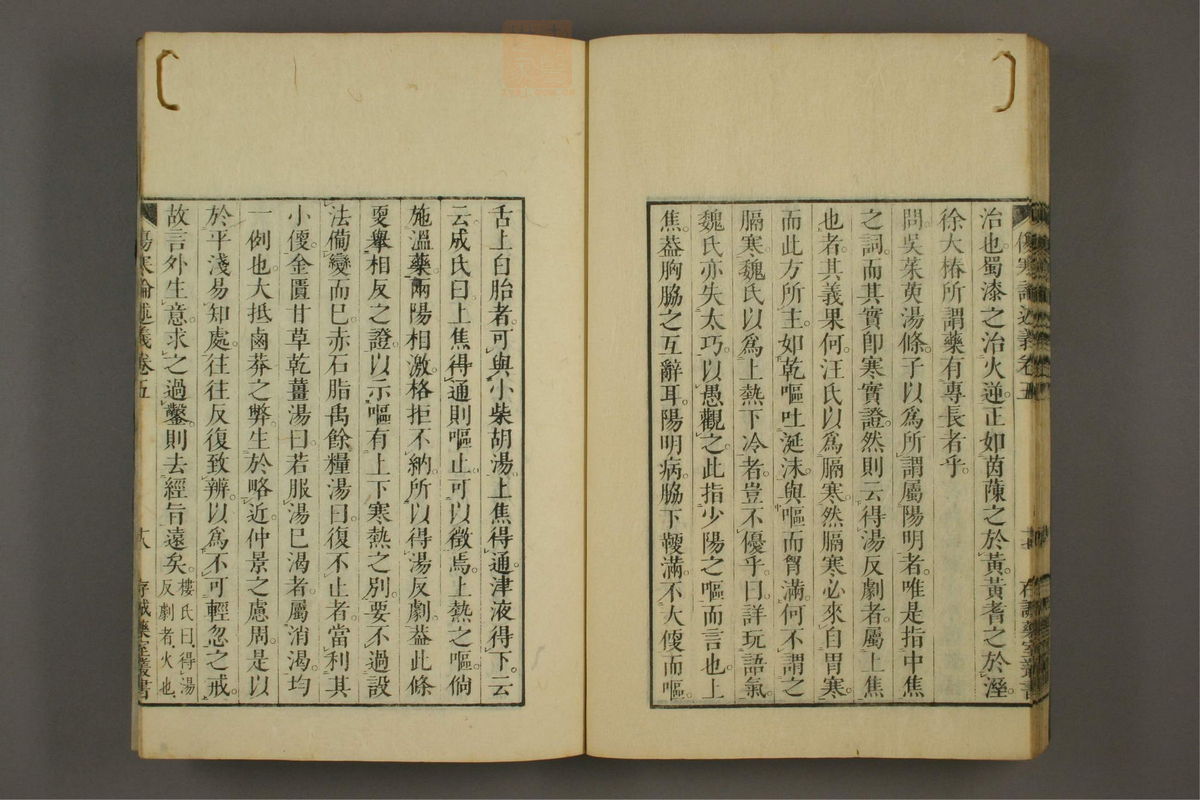 治也。蜀漆之治火逆。正如茵蔯之於黃。黃耆之於溼。
徐大椿所謂藥有專長者乎。
問吳茱萸湯條。子以爲所謂屬陽明者。唯是指中焦
之詞。而其實卽寒實證。然則云得湯反劇者。屬上焦
也者。其義果何。汪氏以爲膈寒。然膈寒必來自胃寒。
而此方所主。如乾嘔吐涎沫。與嘔而胷滿。何不謂之
膈寒。魏氏以爲上熱下冷者。豈不優乎。曰。詳玩語氣。
魏氏亦失太巧。以愚觀之。此指少陽之嘔而言也。上
焦葢胸脇之互辭耳。陽明病。脇下鞕滿。不大便而嘔。
舌上白胎者。可與小柴胡湯。上焦得通。津液得下。云
云。成氏曰。上焦得通則嘔止。可以徵焉。上熱之嘔。倘
施溫藥。兩陽相激。格拒不納。所以得湯反劇。葢此條
更舉相反之證。以示嘔有上下寒熱之別。要不過設
法備變而已。赤石脂禹餘糧湯曰。復不止者。當利其
小便。金匱甘草乾薑湯曰。若服湯已渴者。屬消渴。均
一例也。大抵鹵莽之弊。生於略近。仲景之慮周。是以
於平淺易知處。往往反復致辨。以爲不可輕忽之戒。
故言外生意。求之過鑿。則去經旨遠矣。樓氏曰。得湯
反劇者。火也。
傷寒論述義卷五
十八
存誠藥室叢書